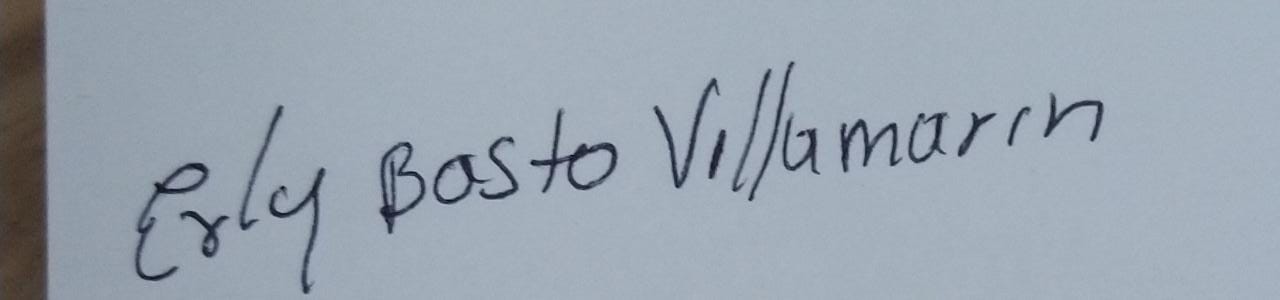 Erly Basto Villamarin